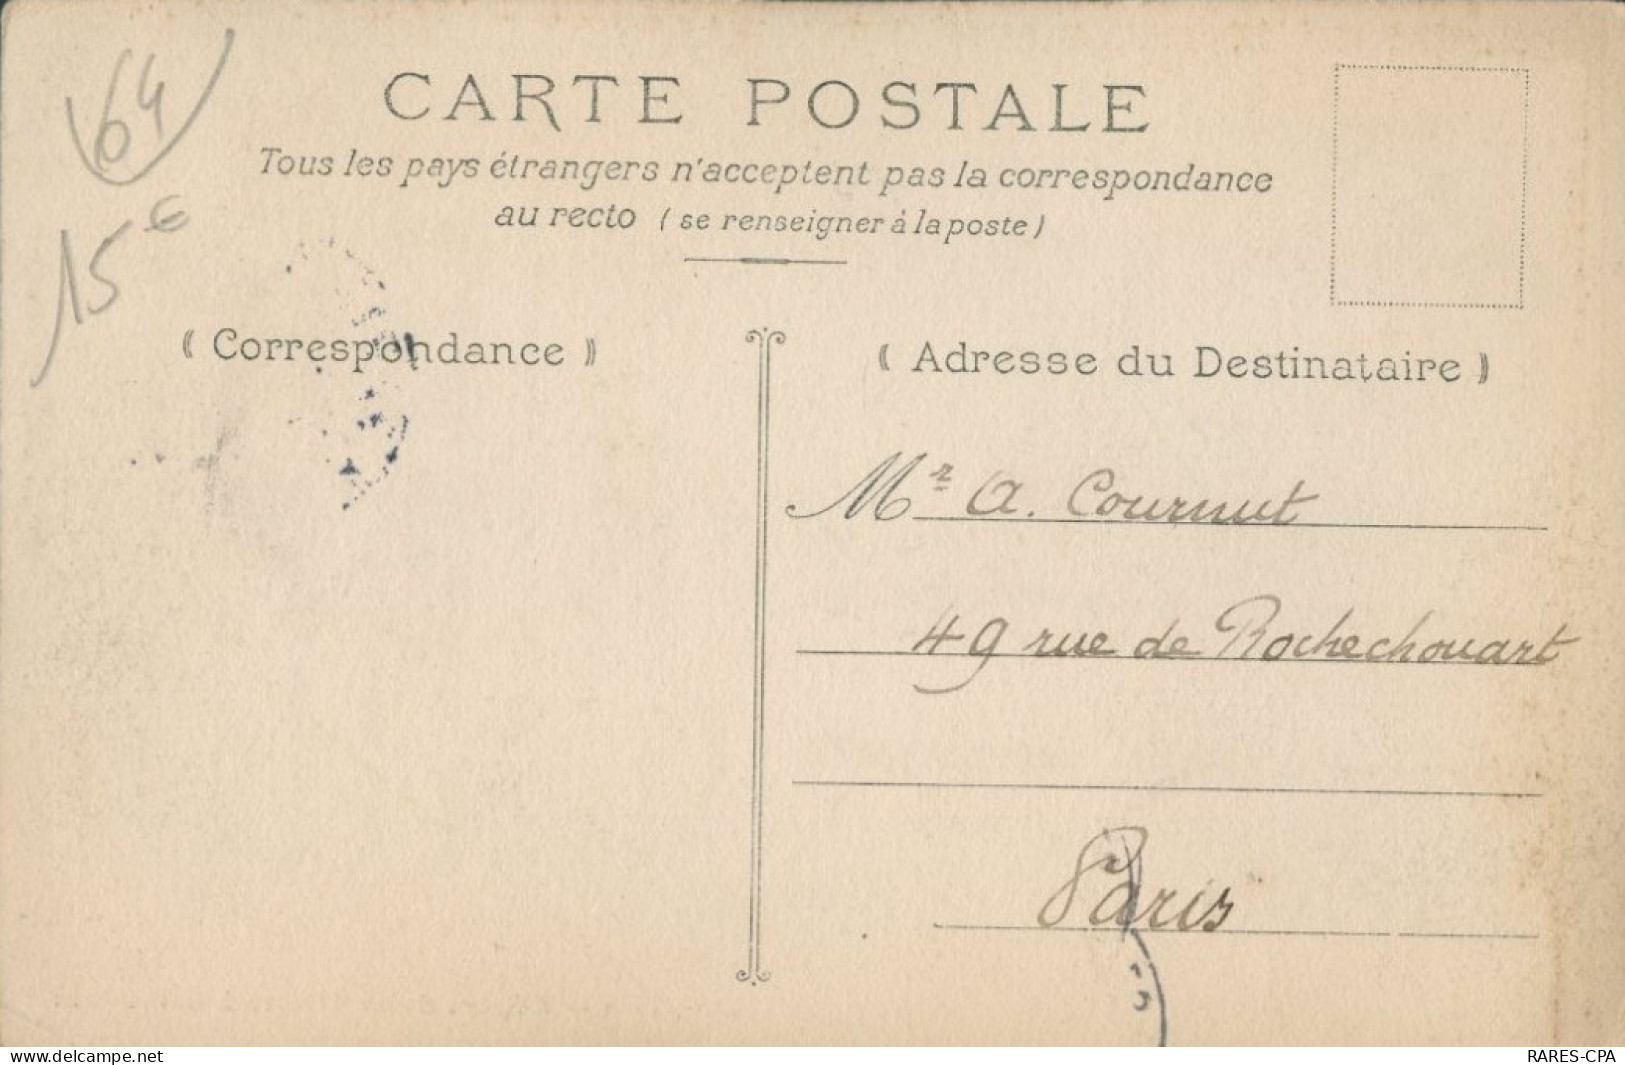 64
15€
CARTE POSTALE
Tous les pays étrangers n'acceptent pas la correspondance
au recto (se renseigner à la poste)
(Correspondance)
(Adresse du Destinataire)
Mr A. Cournut
49 rue de Rochechouart
Paris
www.delcampe.net
RARES-CPA